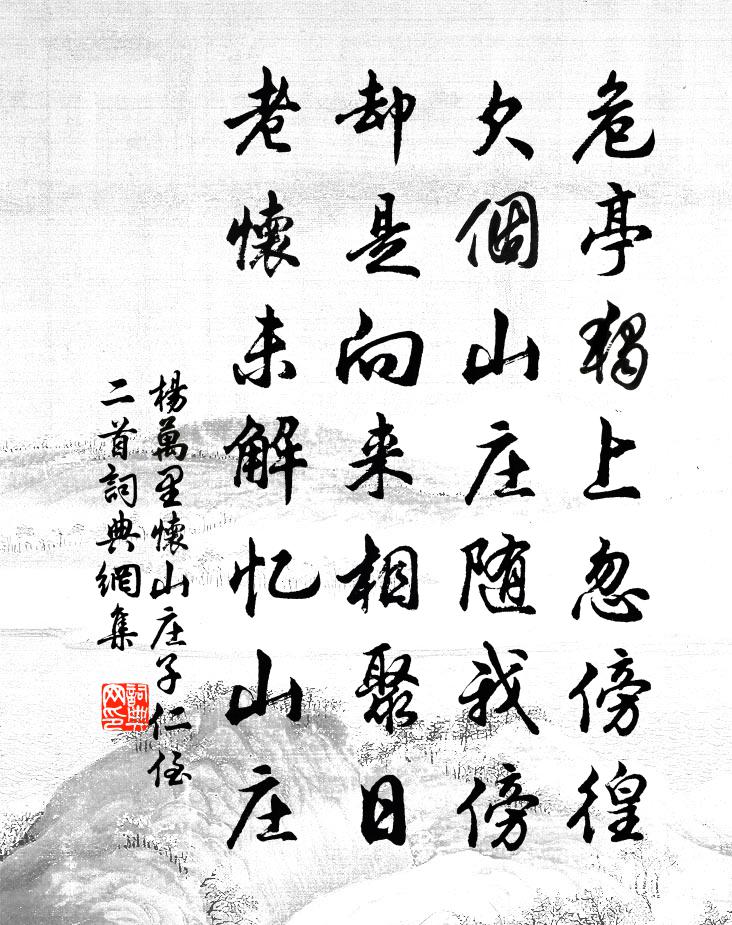 危亭獨上忽傍徨
欠個山庄随我傍
却是向来相聚日
老懷未解忆山庄
楊萬里懷山庄子仁侄
二首詞典網集
詞典网印